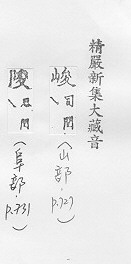 精嚴新集大藏音
峻司閏(山部．p.727)
陖思閏(阜部．p.731)